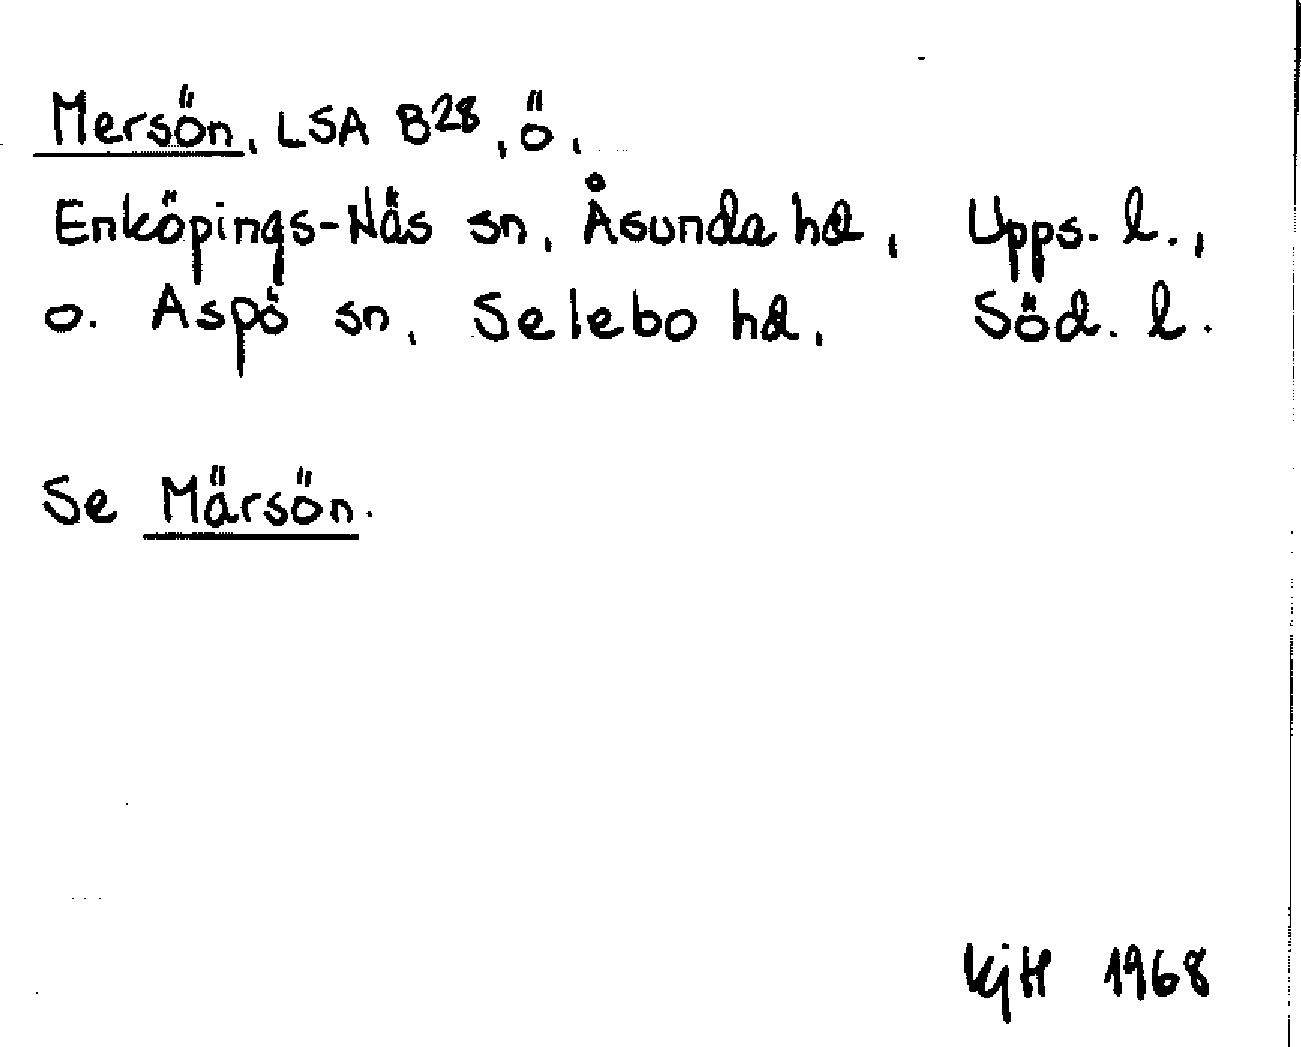 Mersön, LSA B28, ö,
Enköpings-Näs sn, Åsunda hd, Upps. l.,
o. Aspö sn, Selebo hd, Söd. l.
Se Märsön.
KjH 1968